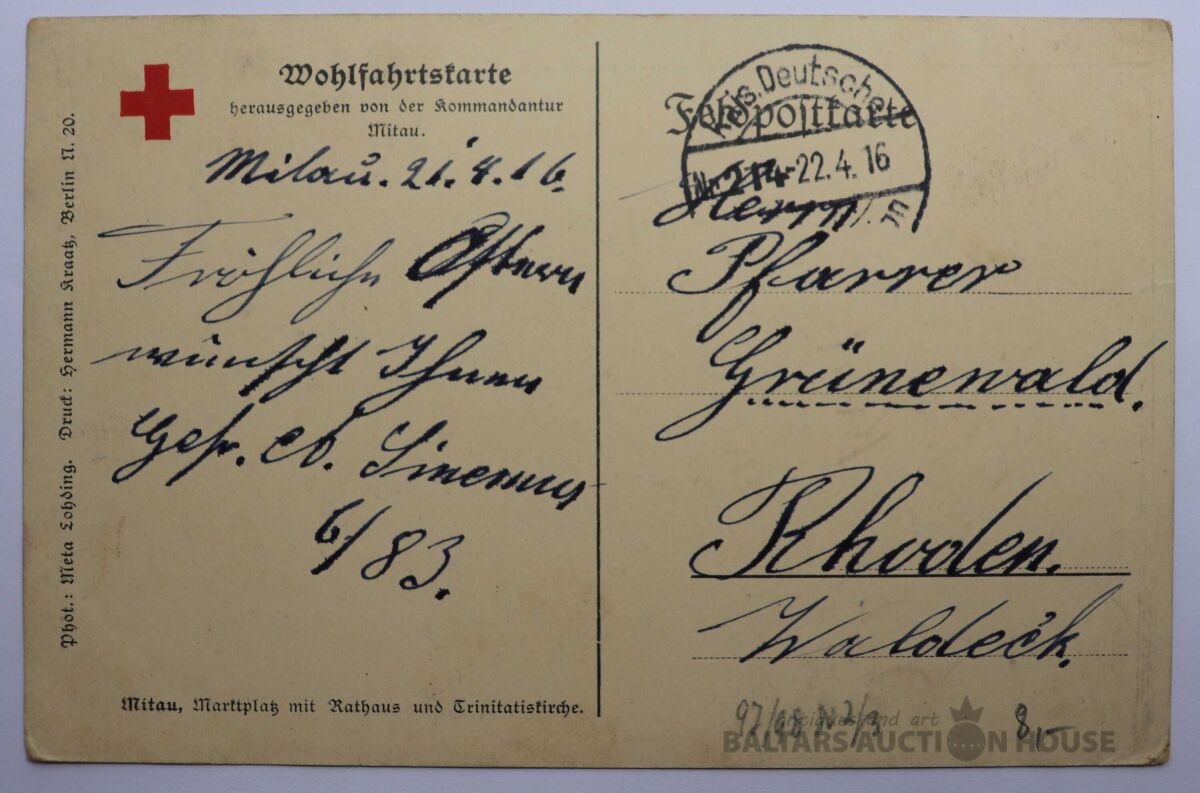 Wohlfahrtskarte
herausgegeben von der Kommandantur
Mitau.
Mitau. 21.4.16.
Fröhliche Ostern
wünscht Ihnen
Gefr. Simemus
6/83.
Mitau, Marktplatz mit Rathaus und Trinitatiskirche.
Phot.: Meta Lohding. Druck: Hermann Kraatz, Berlin N. 20.
Feldpostkarte
Kais. Deutsche
Nr. 214 -22.4.16
Herrn
Pfarrer
Grünewald.
Rhoden.
Waldeck.
8,-
antiques and art
BALTARS AUCTION HOUSE